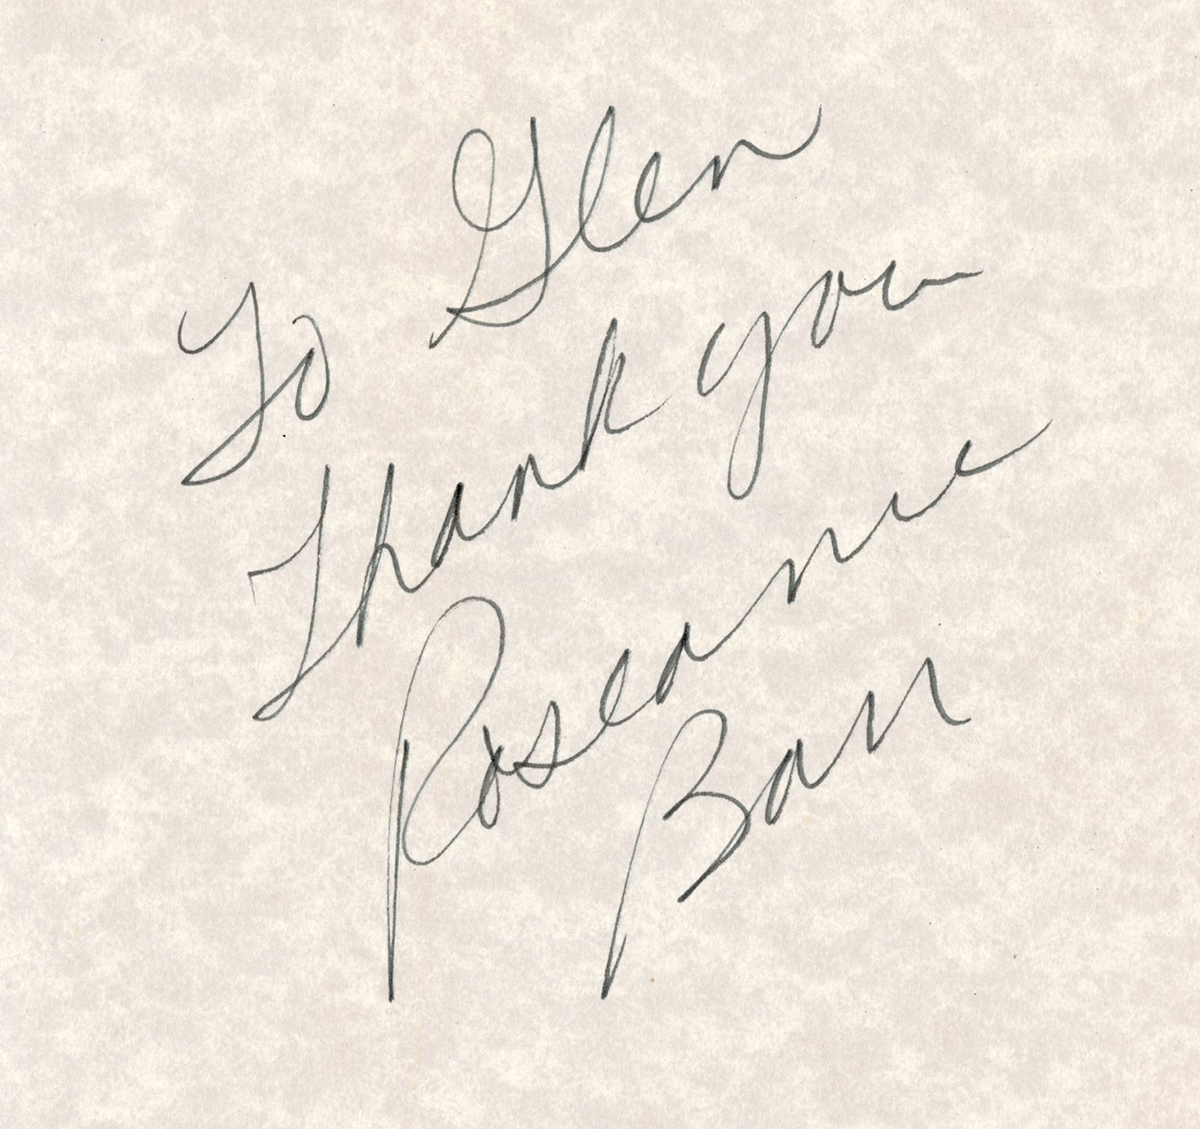 To Glen
Thank you
Roseanne
Barr